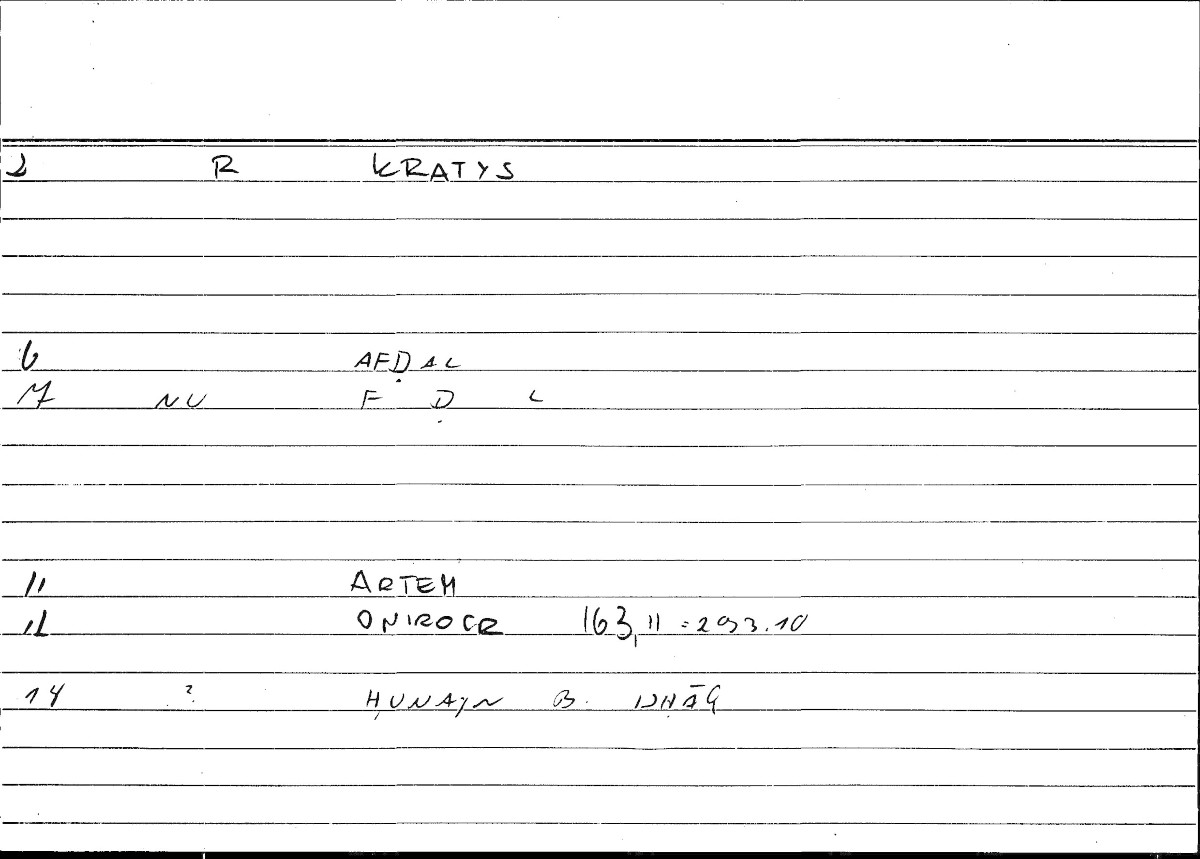 2 R KRATYS
6 AFḌAL
7 NU F Ḍ L
11 ARTEM
12 ONIROCR 163,11 = 293.10
14 ? ḤUNAYN B.